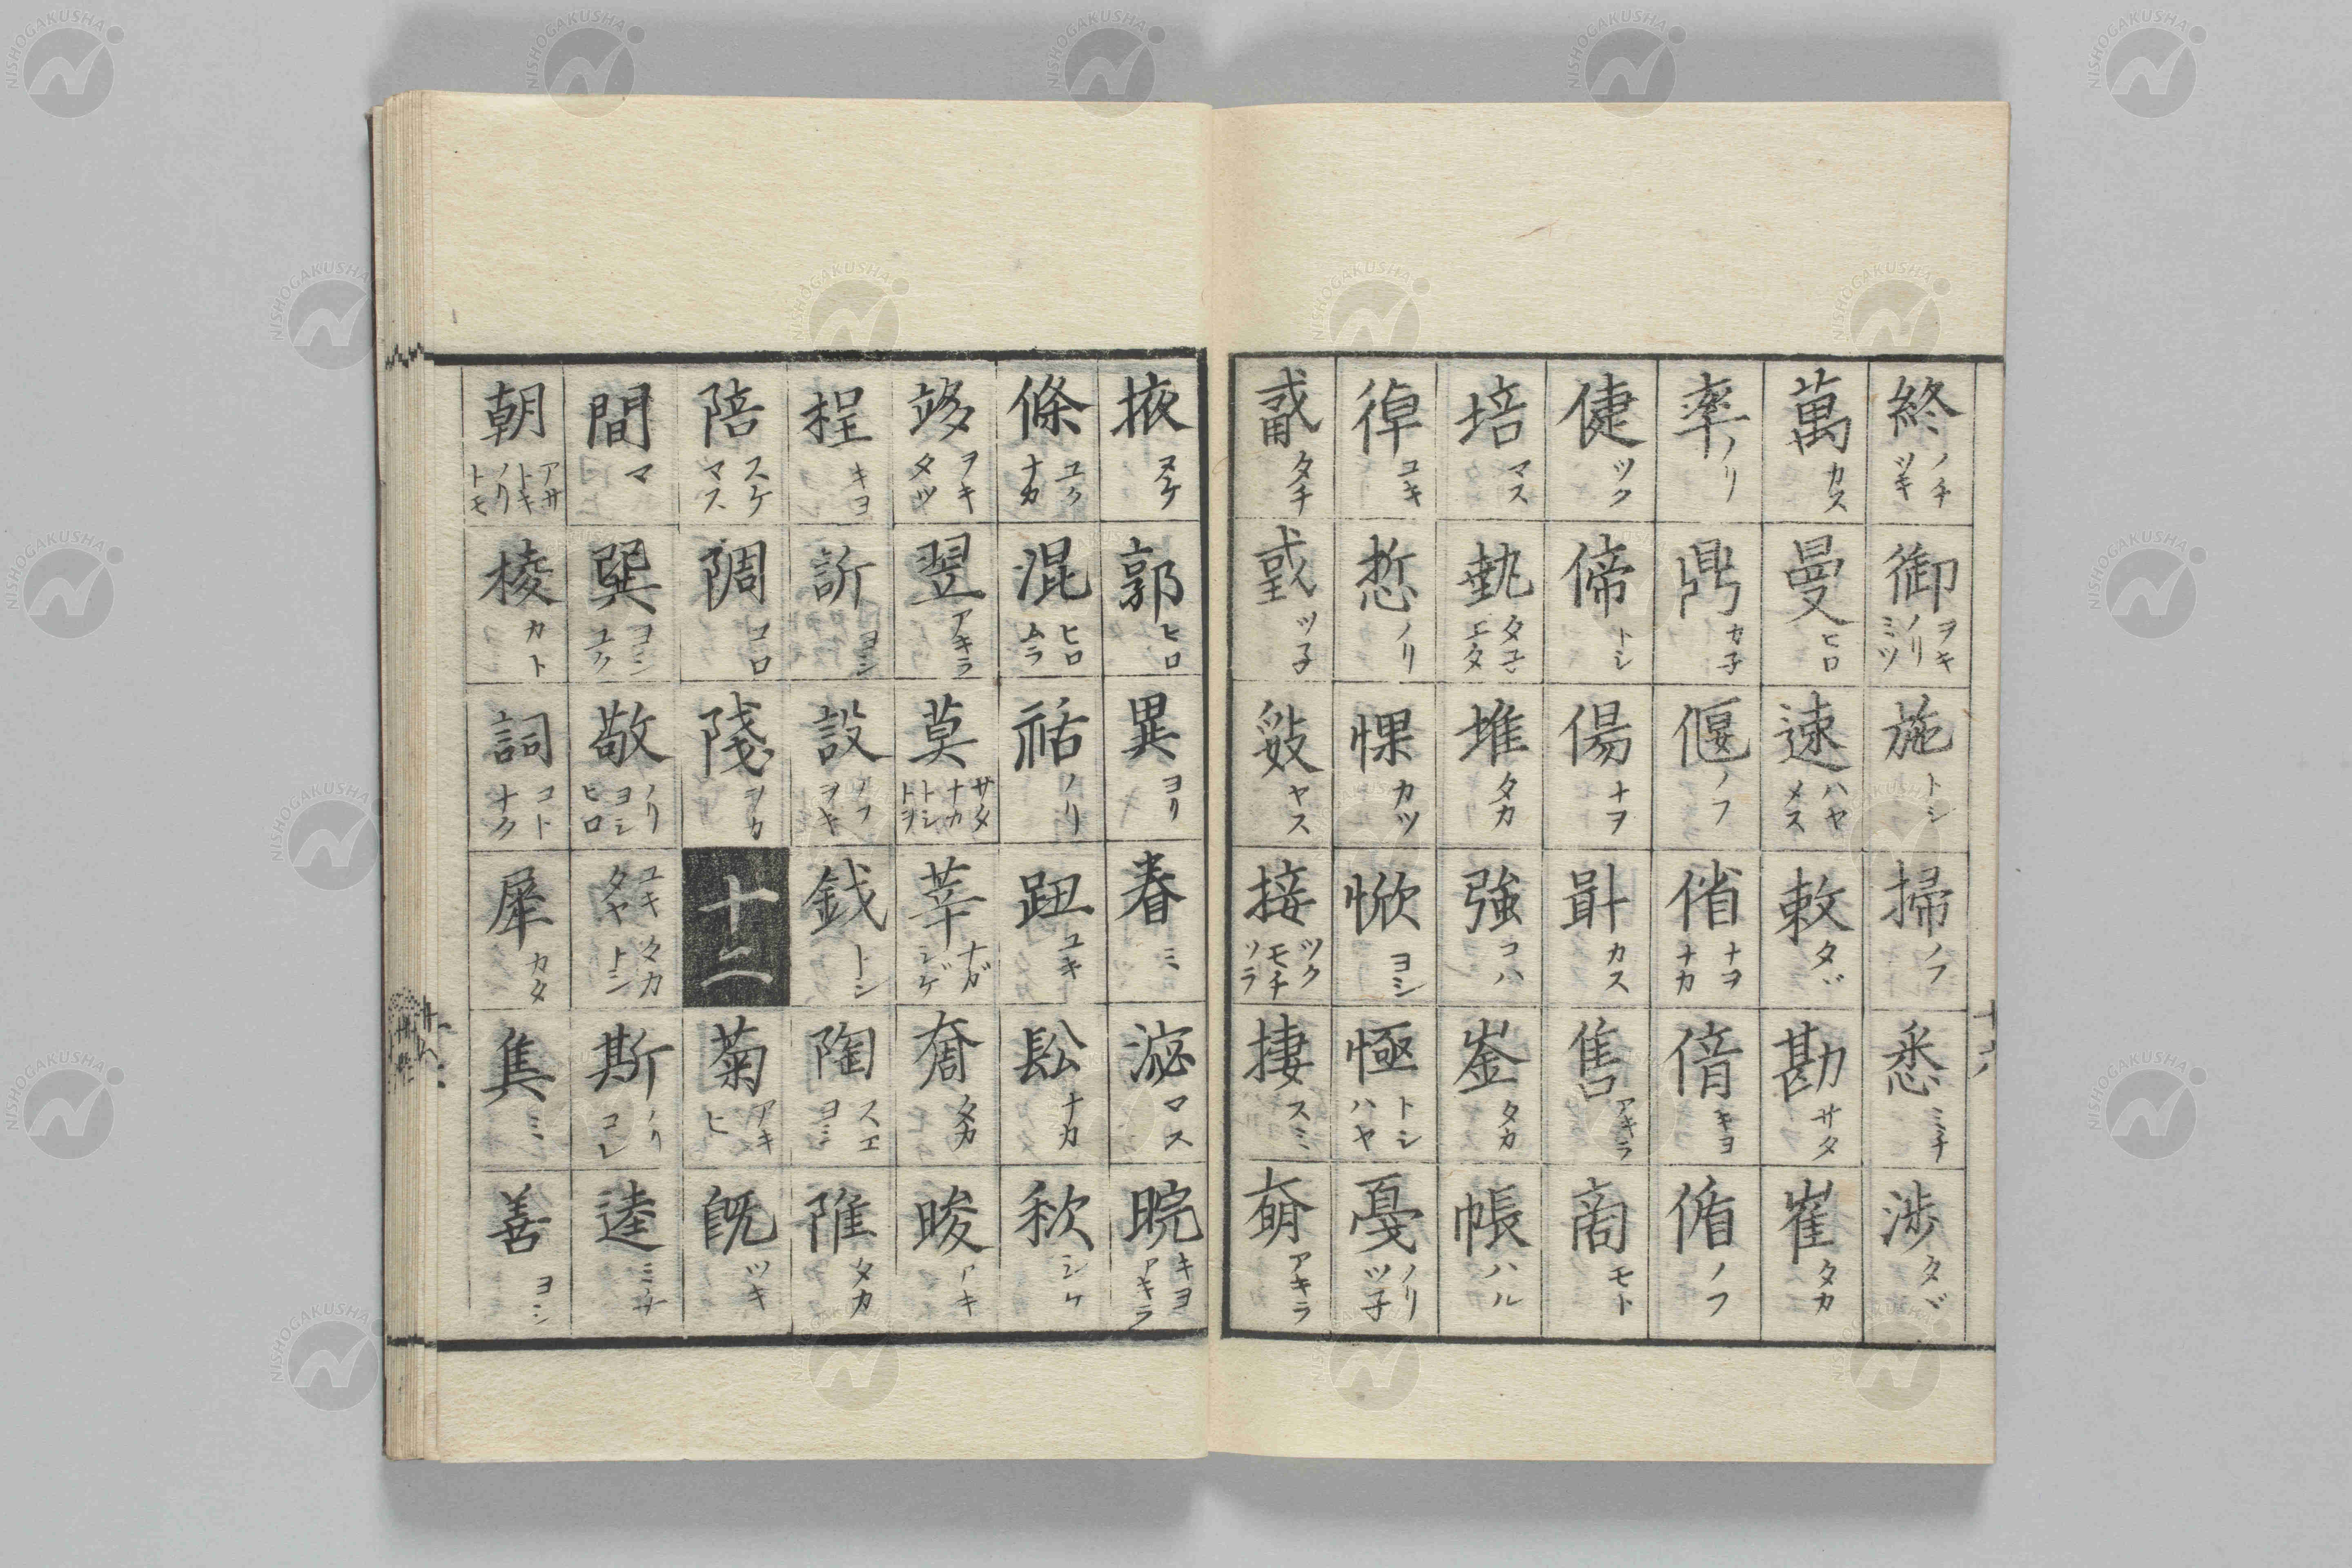 終 ノチ ツキ 御 ヲキ ノリ ミツ 施 トシ 掃 ノフ 悉 ミチ 渉 タヾ
萬 カス 曼 ヒロ 速 ハヤ メス 敕 タヾ 勘 サタ 崔 タカ
率 ノリ 鼎 カ子 偃 ノフ 偗 ナヲ ナカ 偣 キヨ 偱 ノフ
健 ツク 偙 トシ 偒 ナヲ 斝 カス 售 アキラ 商 モト
培 マス 執 タ子 エタ 堆 タカ 強 コハ 崟 タカ 帳 ハル
徫 ユキ 悊 ノリ 惈 カツ 惞 ヨシ 悑 トシ ハヤ 戞 ノリ ツ子
タチ ツ子 敍 ヤス 接 ツク モチ ソラ 捿 スミ アキラ
掖 スケ 郭 ヒロ 異 ヨリ 春 ミ マス 晥 キヨ アキラ
條 ユク ナカ 混 ヒロ ムラ 祏 ノリ 跙 ユキ 髟 ナカ 秋 シケ
ヲキ タツ 翌 アキラ 莫 サタ ナカ トシ トヲ 莘 ナガ シゲ タカ 晙 アキ
桯 キヨ 訢 ヨシ 設 ノフ ヲキ 銭 トシ 陶 スエ ヨシ 陮 タカ
陪 スケ マス コロ 陵 ヲカ 十二 菊 アキ ヒ 既 ツキ
間 マ 巽 ヨシ ユク 敬 ノリ ヨシ ヒロ ユキ タカ タヤ トシ 斯 ノリ コレ 逵 ミチ
朝 アサ トキ ノリ トモ 棱 カト 詞 コト ナク 犀 カタ 善 ヨシ
十六